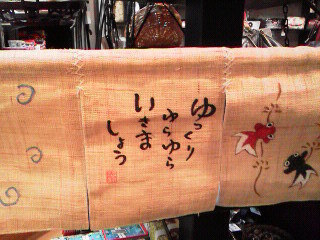 ゆっくり
ゆらゆら
いきま
しょう